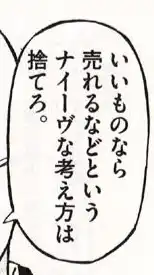 いいものなら
売れるなどという
ナイーヴな考え方は
捨てろ。